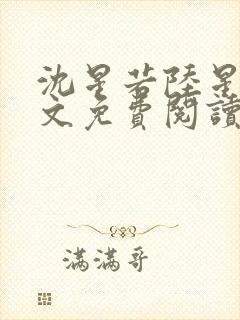 沈星若陸星
文免費閱讀
滿滿哥